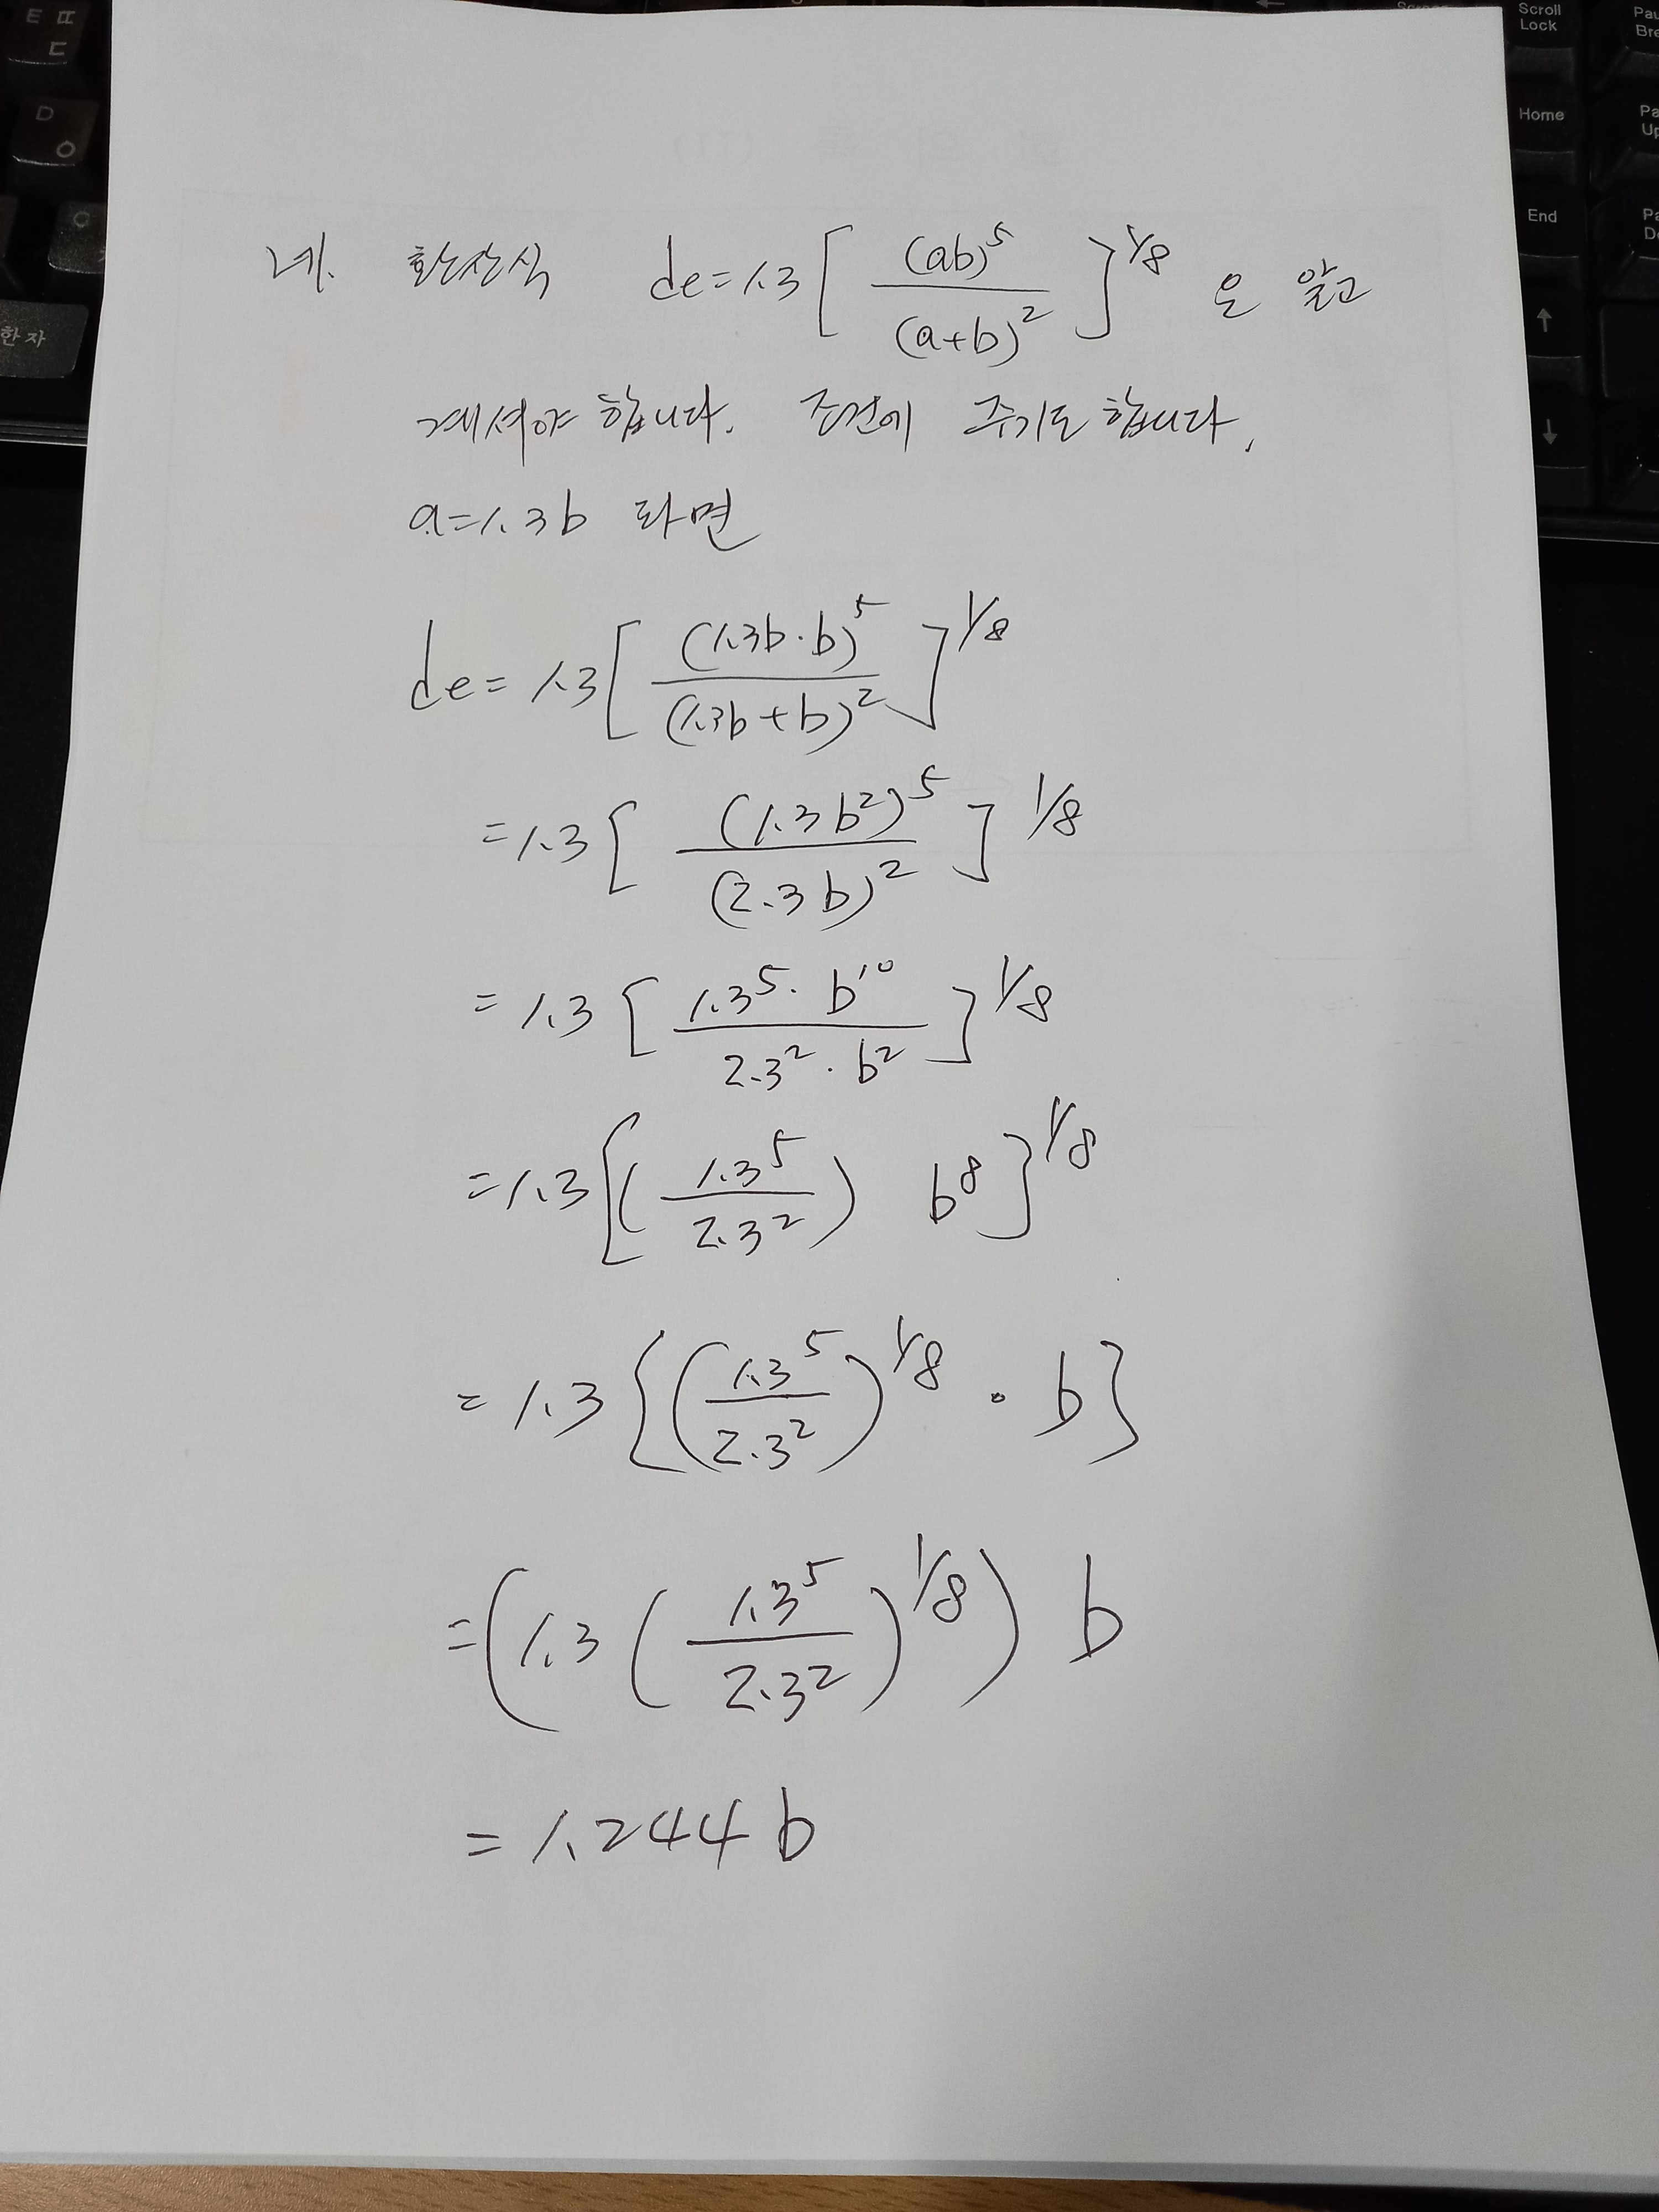 ㅌ ㄸ
ㄷ
D
ㅇ
C
한자
Scroll
Lock
Home
End
↑
↓
네. 환산식 de=1.3[(ab)⁵/(a+b)²]^1/8 은 알고
계셔야 합니다. 조건에 주기도 합니다.
a=1.3b 라면
de=1.3[(1.3b·b)⁵/(1.3b+b)²]^1/8
=1.3[(1.3b²)⁵/(2.3b)²]^1/8
=1.3[1.3⁵·b¹⁰/2.3²·b²]^1/8
=1.3[(1.3⁵/2.3²) b⁸]^1/8
=1.3{(1.3⁵/2.3²)^1/8·b}
=(1.3(1.3⁵/2.3²)^1/8) b
=1.244b